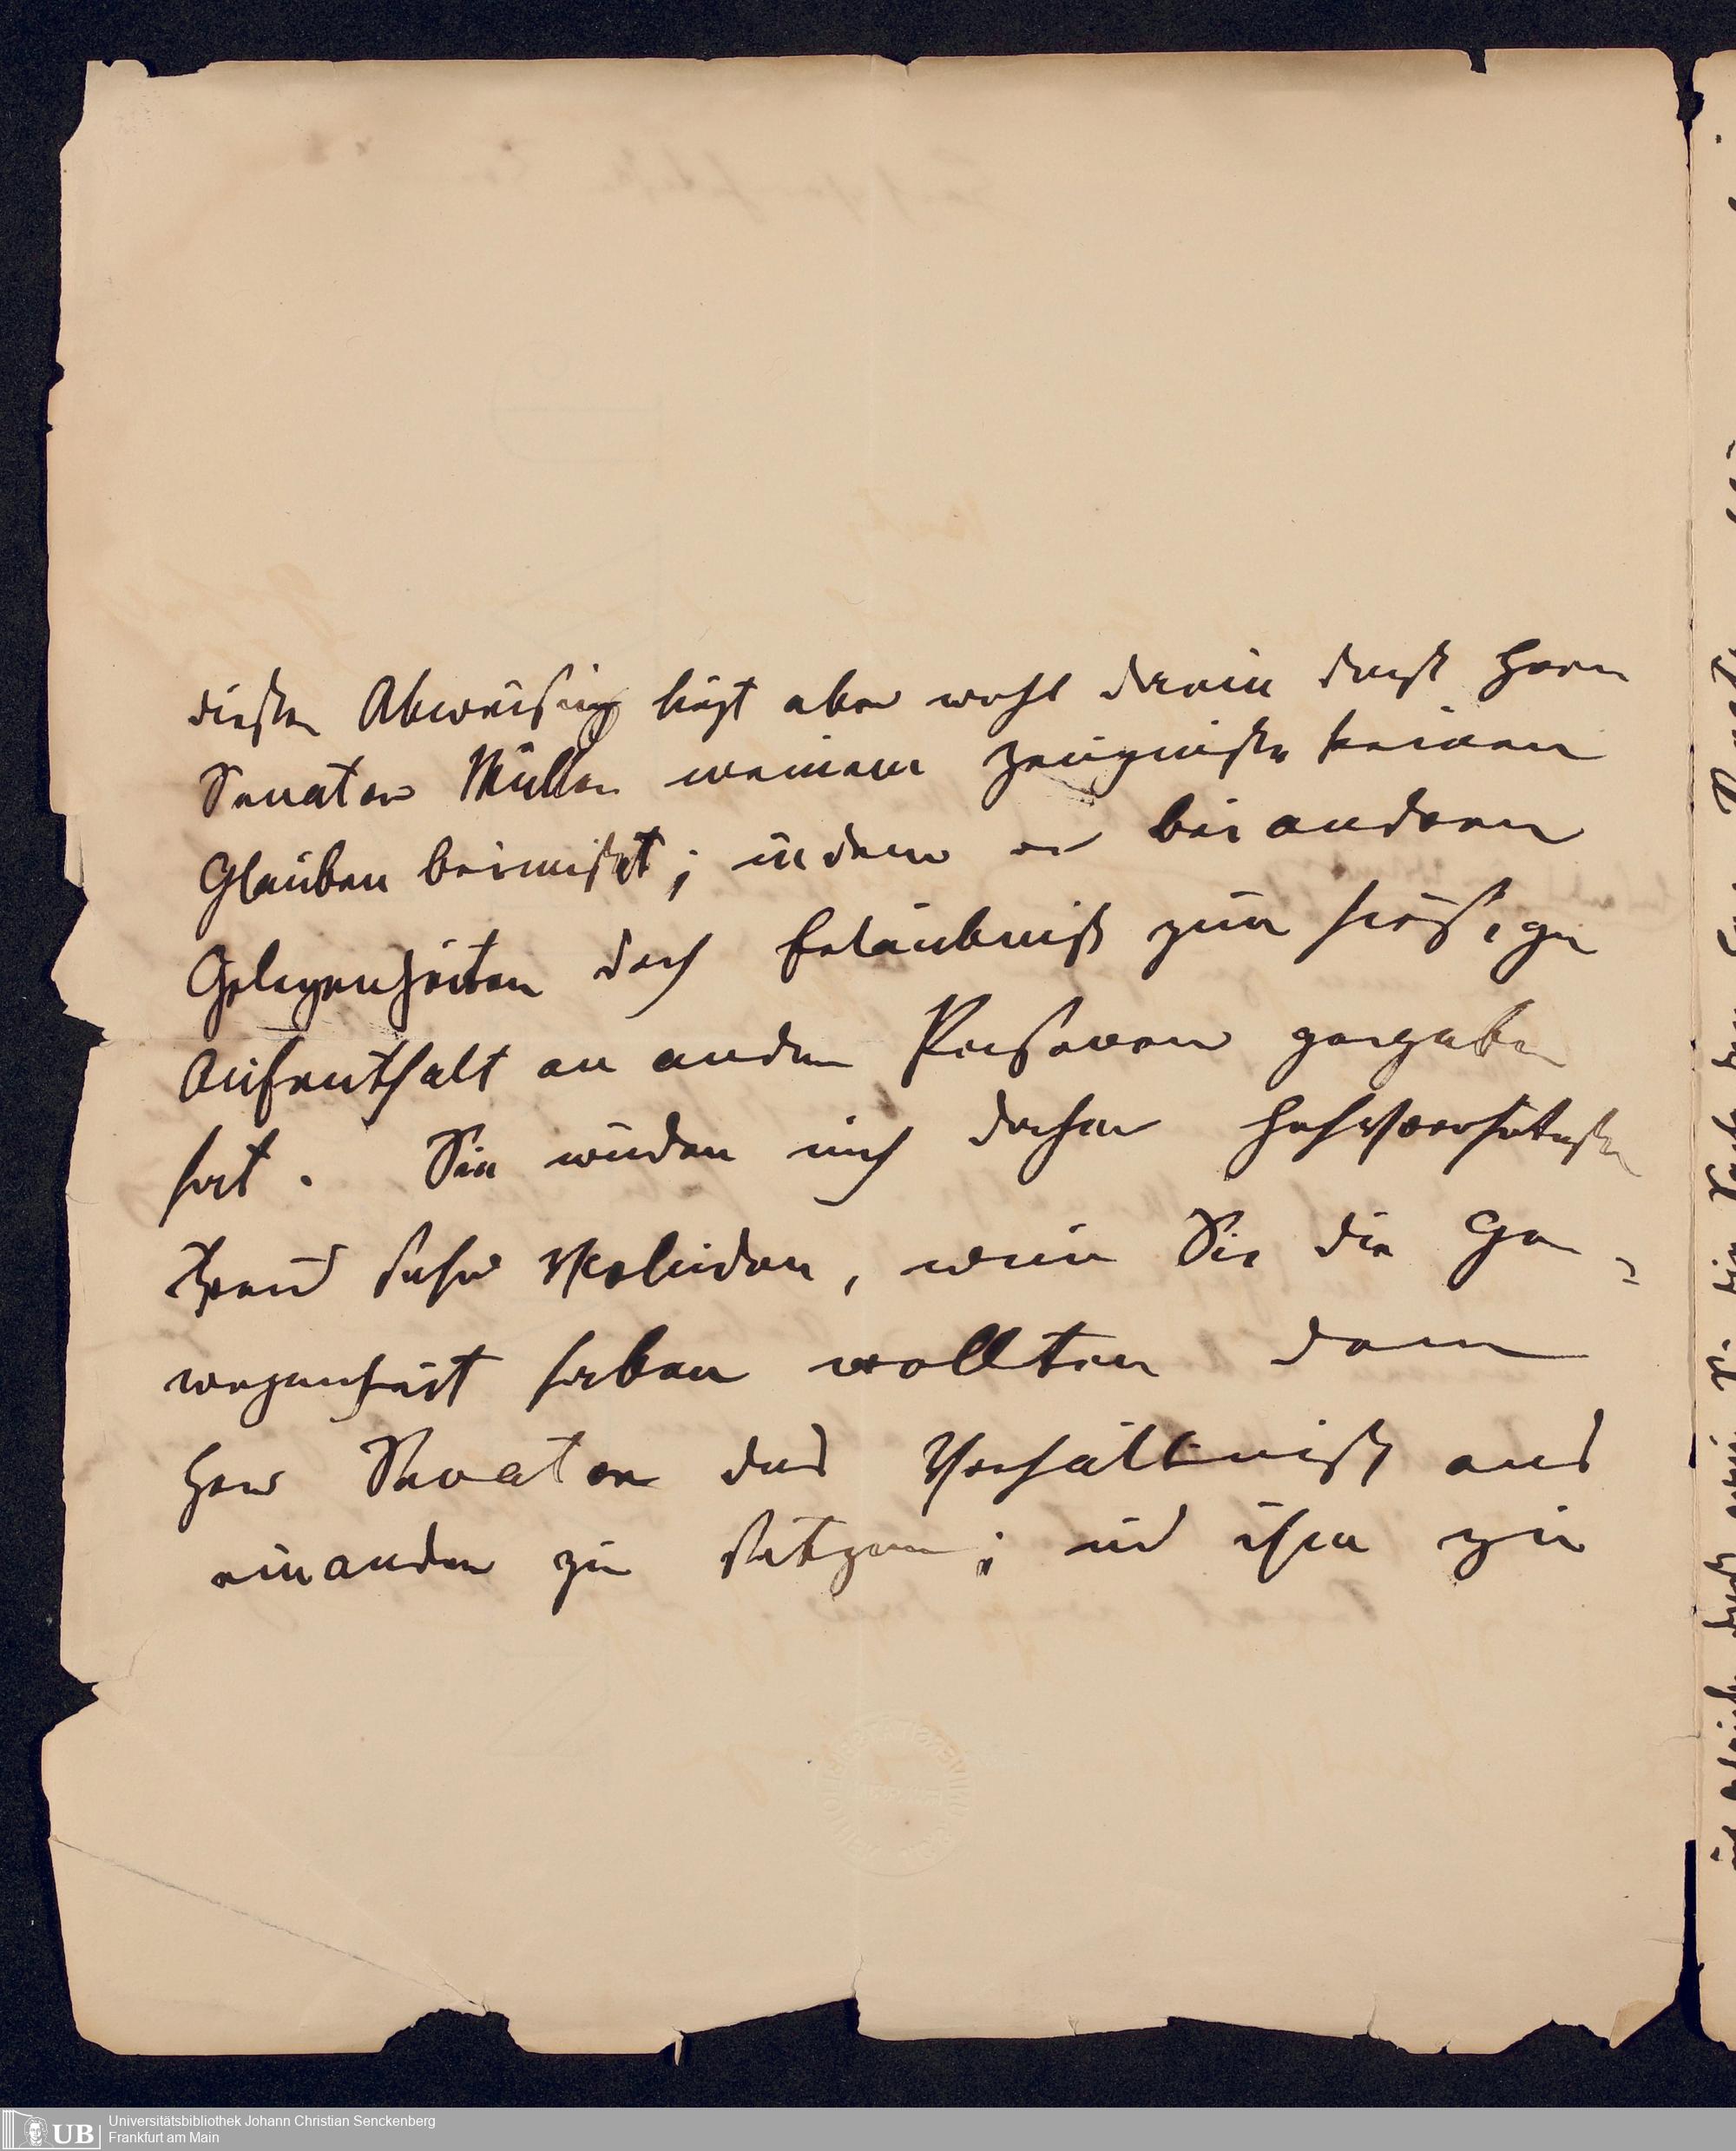 dieser Abweisung liegt aber wohl darin daß Herr
Senator Müller meinem Zeugnisse keinen
Glauben beimißt; indem er bei anderen
Gelegenheiten doch Erlaubniß zum hiesigen
Aufenthalt an andere Personen gegeben
hat. Sie würden mich daher
sehr verbinden, wenn Sie die Ge-
wogenheit haben wollten dem
Herr Senator das Verhältniß aus
einander zu setzen; und ihm zu
Universitätsbibliothek Johann Christian Senckenberg
UB Frankfurt am Main